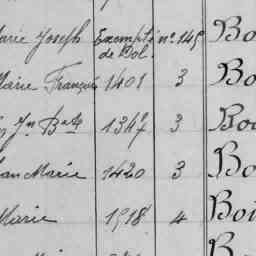 Marie Joseph Exempté nº 145 Bo
de Dol.
Marie François 1401 3 Bo
Jn Bte 1347 3 Bo
Jean Marie 1420 3 Bo
Marie 1518 4 Boi